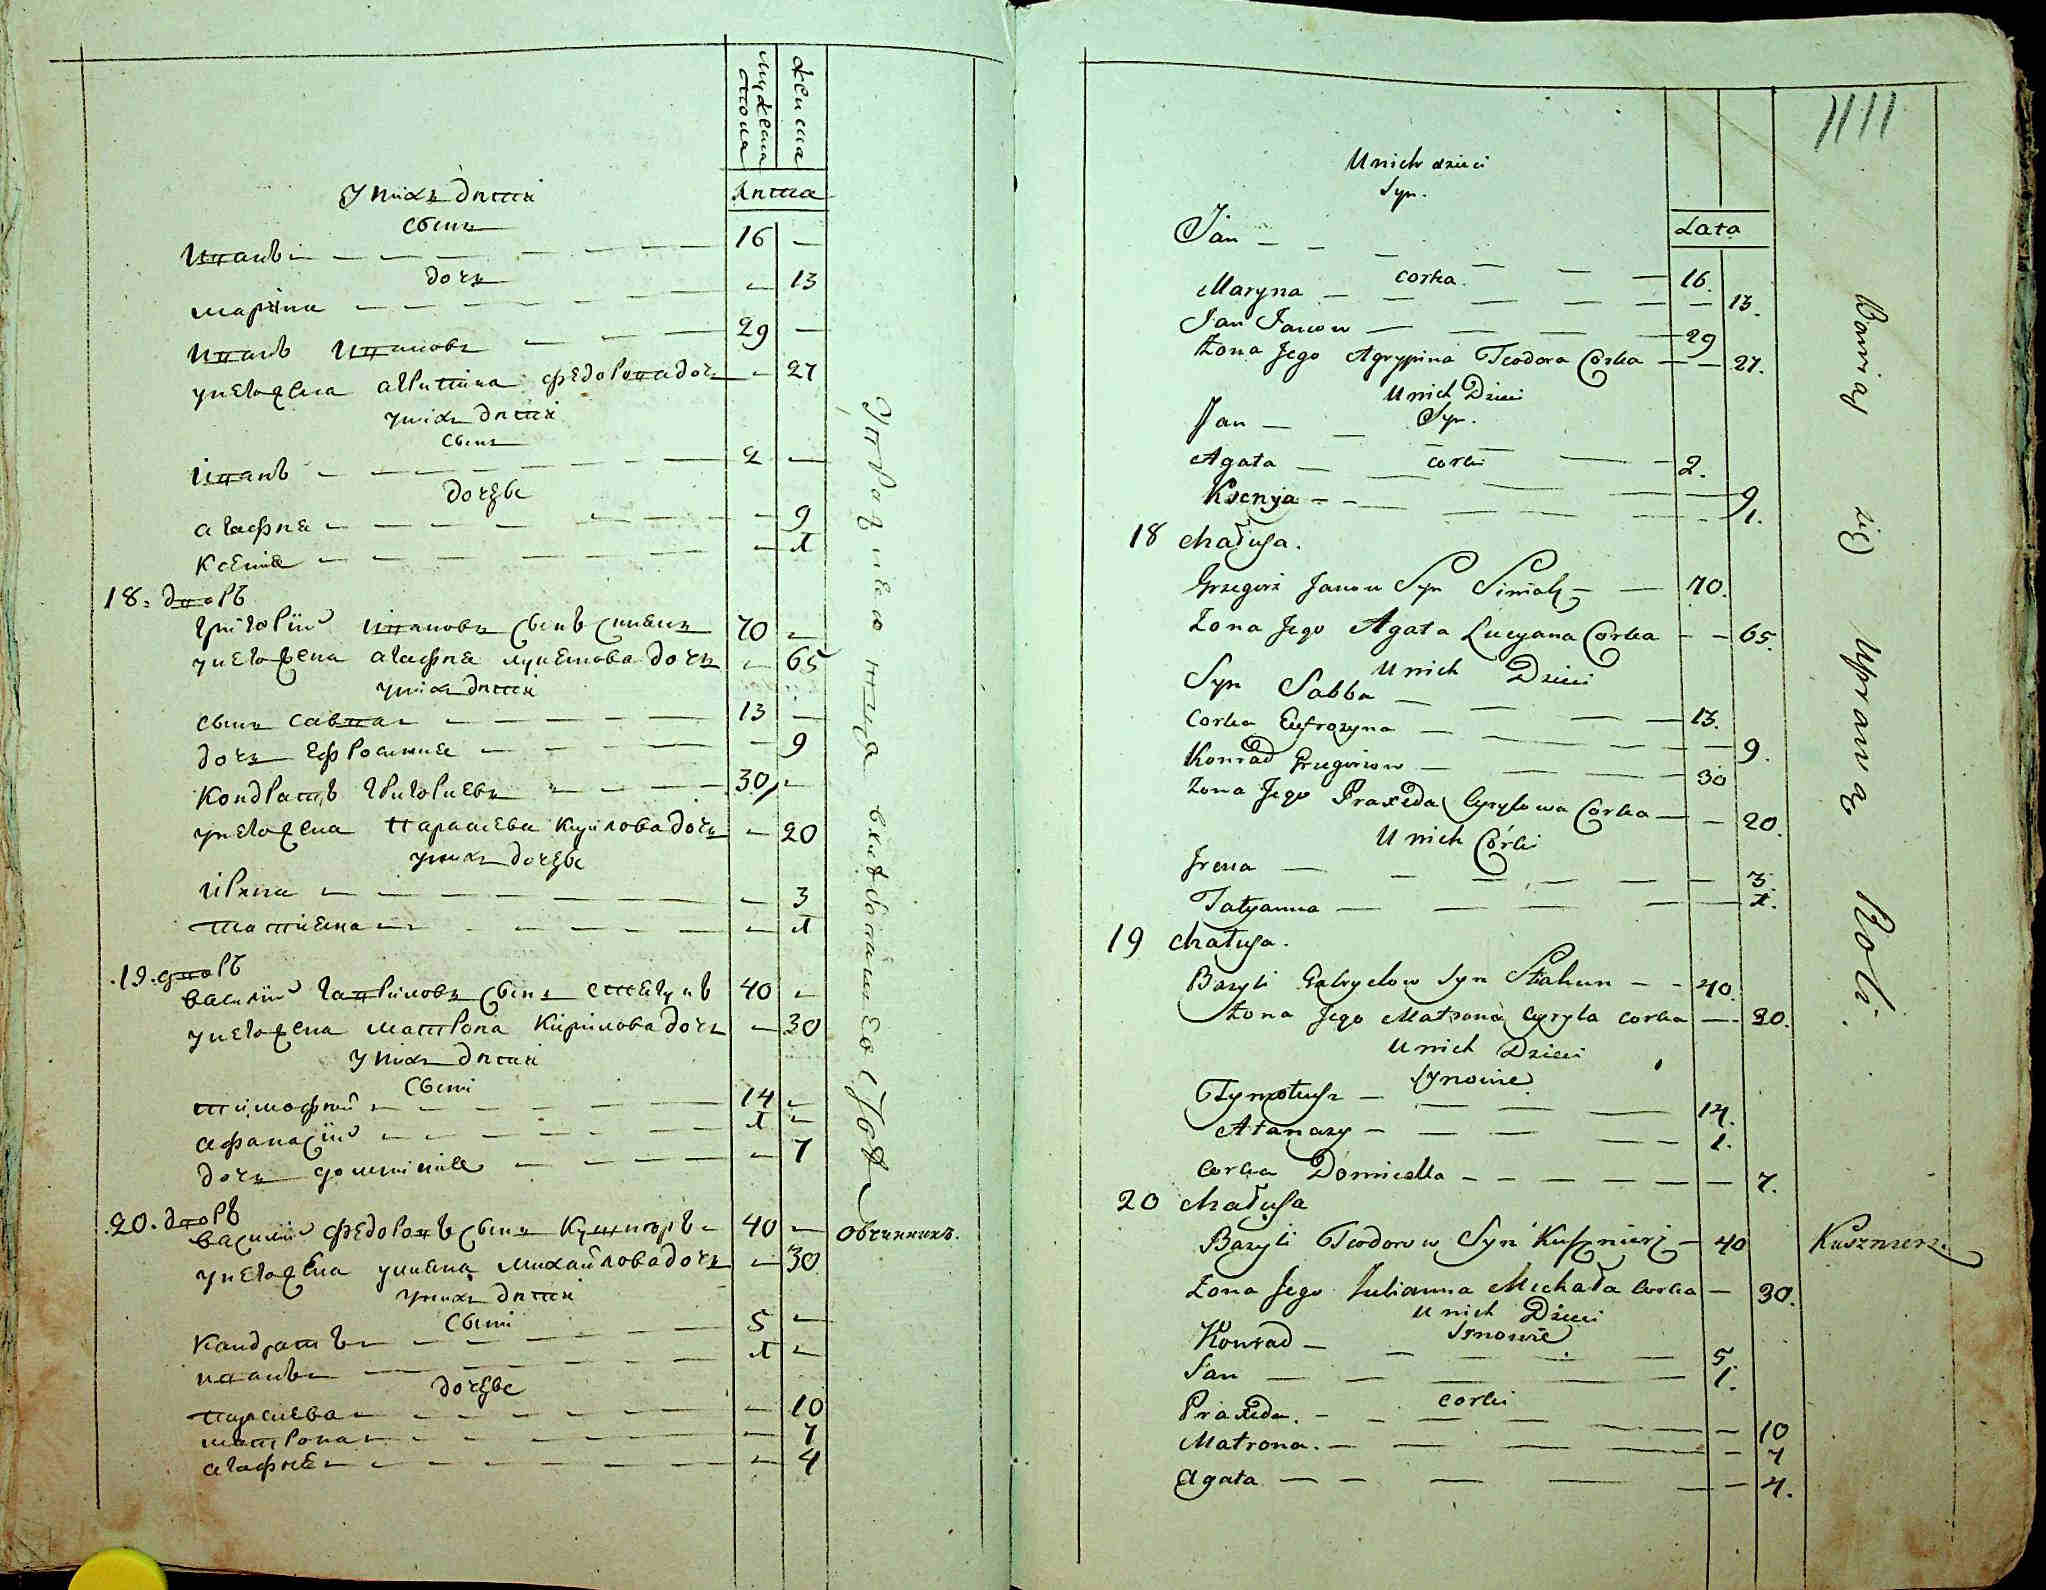 мужеска
пола
женска
Лѣта
У нихъ дѣти
Сынъ
Иванъ 16
дочь
Марина 13
Иванъ Ивановъ 29
у него жена Агрипина Федорова дочь 27
у нихъ дѣти
Сынъ
Иванъ 2
дочери
Агафиа 9
Ксениа 1
18. дворъ
Григорій Ивановъ сынъ 70
у него жена Агафиа дочь 65
у нихъ дѣти
Сынъ Савва 13
дочь Ефросиниа 9
Кондратъ Григориевъ 30
у него жена Параскева Кирилова дочь 20
у нихъ дочери
Ирина 3
Татиана 1
19. дворъ
Василій Гавриловъ сынъ 40
у него жена Матрона Кирилова дочь 30
У нихъ дѣти
Сыни
Тимофей 14
Афанасій 1
дочь Доминикиа 7
20. дворъ
Василій Федоровъ сынъ Кушниръ 40 Овчинникъ.
у него жена Улиана Михайлова дочь 30
у нихъ дѣти
Сыни
Кандратъ 5
Иванъ 1
дочери
Параскева 10
Матрона 7
Агафиа 4
U nich dzieci
Syn.
Lata
Jan 16.
corka.
Maryna 13.
Jan Janow 29
Żona Jego Agrypina Teodora Corka 27.
U nich Dzieci
Syn.
Jan 2.
corki
Agata 9
Ksenja 1.
18 chałupa.
Grzegorz Janow Syn 70.
Żona Jego Agata Lucyana Corka 65.
U nich Dzieci
Syn Sabba 13.
Corka Eufrozyna 9.
Konrad Grzegorzow 30
Żona Jego Praxeda Cyryłowa Corka 20.
U nich Córki
Irena 3.
Tatyanna 1.
19 chałupa.
Bazyli Gabryelow Syn 40.
Żona Jego Matrona Cyryla corka 30.
U nich Dzieci
Synowie
Tymoteusz 14.
Atanazy 1.
Corka Domicella 7.
20 chałupa
Bazyli Teodorow Syn Kusznierz 40 Kusznierz.
Żona Jego Julianna Michała Corka 30.
U nich Dzieci
Synowie
Konrad 5.
Jan 1.
corki
Praxeda. 10
Matrona. 7
Agata 4.
Bawią się Uprawą Roli.